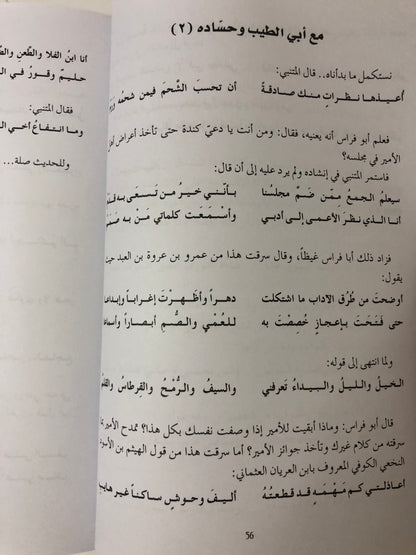 مع أبي الطيب وحسّاده (٢)
نستكمل ما بدأناه.. قال المتنبي:
أعيذها نظراتٍ منك صادقةً أن تحسبَ الشَّحمَ فيمن شحمُه
فعلم أبو فراس أنه يعنيه، فقال: ومن أنت يا دعيّ كندة حتى تأخذ أعراض
الأمير في مجلسه؟
فاستمر المتنبي في إنشاده ولم يرد عليه إلى أن قال:
سيعلمُ الجمعُ ممّن ضمَّ مجلسُنا بأنّني خيرُ من تَسعَى به
أنا الذي نظرَ الأعمى إلى أدبي وأسْمَعَت كلماتي مَنْ به
فزاد ذلك أبا فراس غيظاً، وقال سرقت هذا من عمرو بن عروة بن العبد حين
يقول:
أوضحتَ من طُرُقِ الآداب ما اشتكلت دهراً وأظهرْتَ إغراباً
حتى فَتَحْتَ بإعجازٍ خُصِصْتَ به للعُمْي والصُّم أبصاراً
ولما انتهى إلى قوله:
الخيلُ والليلُ والبيداءُ تعرفني والسيفُ والرُّمْحُ والقِرطاسُ والقلمُ
قال أبو فراس: وماذا أبقيت للأمير إذا وصفت نفسك بكل هذا؟ تمدح الأمير
سرقته من كلام غيرك وتأخذ جوائز الأمير؟ أما سرقت هذا من قول الهيثم بن الأسود
النخعي الكوفي المعروف بابن العريان العثماني:
أعاذلتي كم مَهْمَهٍ قد قطعتُهُ أليفَ وحوشٍ ساكناً غيرَ هايبِ
56
أنا ابنُ الفلا والطّعنِ
حليمٌ وقورٌ في
فقال المتنبي:
وما انتفاعُ أخي
وللحديث صلة...